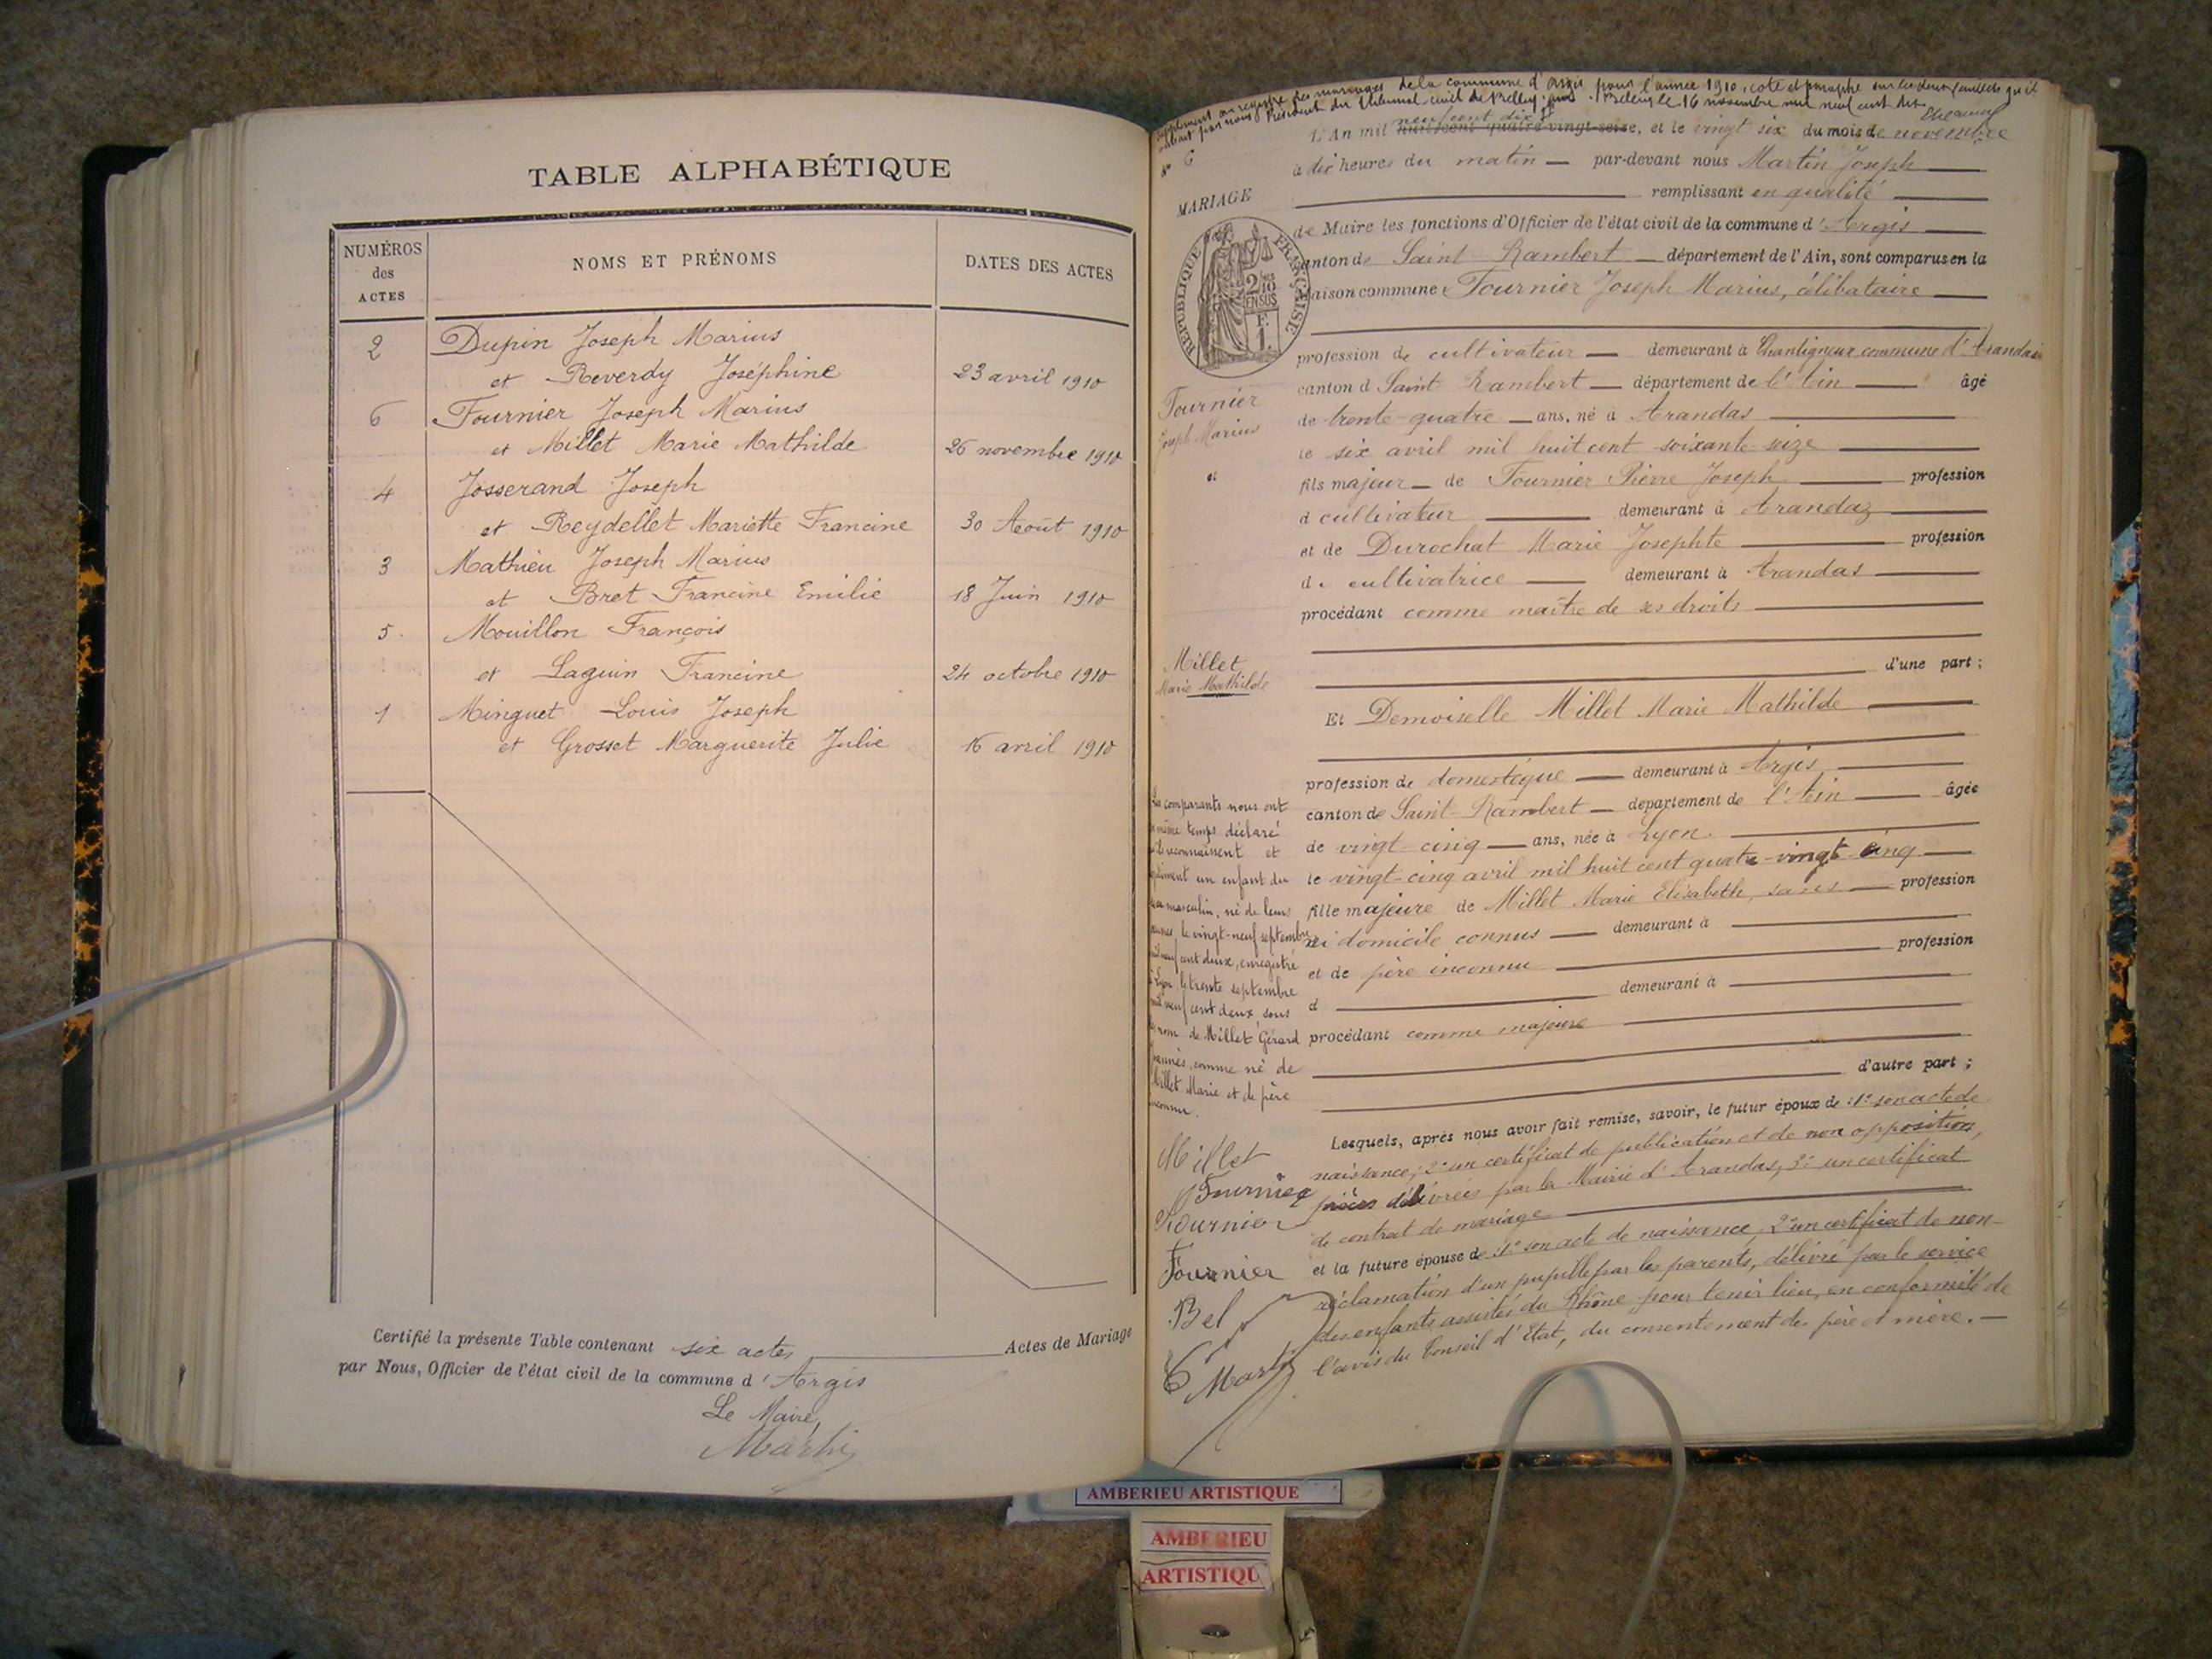 TABLE ALPHABÉTIQUE
NUMÉROS des ACTES
NOMS ET PRÉNOMS
DATES DES ACTES
2 Dupin Joseph Marius
et Reverdy Joséphine 23 avril 1910
6 Fournier Joseph Marius
et Millet Marie Mathilde 26 novembre 1910
4 Josserand Joseph
et Reydellet Mariette Francine 30 Août 1910
3 Mathieu Joseph Marius
et Bret Francine Emilie 18 Juin 1910
5. Mouillon François
et Laguin Francine 24 octobre 1910
1 Minguet Louis Joseph
et Grosset Marguerite Julie 16 avril 1910
Certifié la présente Table contenant six actes Actes de Mariage
par Nous, Officier de l'état civil de la commune d'Argis
Le Maire,
Martin
Supplément au registre des mariages de la commune d'Argis pour l'année 1910, coté et paraphé sur les deux feuillets qu'il
contient par nous Président du Tribunal civil de Belley. Belley le 16 novembre mil neuf cent dix
N° 6
MARIAGE
RÉPUBLIQUE FRANÇAISE
2/10 EN SUS
F. 1.
Fournier
Joseph Marius
et
Millet
Marie Mathilde
neuf cent dix
L'An mil huit cent quatre-vingt-seize, et le vingt six du mois de novembre
à dix heures du matin par-devant nous Martin Joseph
remplissant en qualité
de Maire les fonctions d'Officier de l'état civil de la commune d'Argis
canton de Saint-Rambert département de l'Ain, sont comparus en la
maison commune Fournier Joseph Marius, célibataire
profession de cultivateur demeurant à Chantigneux commune d'Arandas
canton d Saint-Rambert département de l'Ain âgé
de trente-quatre ans, né à Arandas
le six avril mil huit cent soixante-seize
fils majeur de Fournier Pierre Joseph profession
d cultivateur demeurant à Arandaz
et de Durochat Marie Josephte profession
de cultivatrice demeurant à Arandas
procédant comme maître de ses droits
d'une part;
Et Demoiselle Millet Marie Mathilde
profession de domestique demeurant à Argis
canton de Saint-Rambert département de l'Ain âgée
de vingt-cinq ans, née à Lyon.
le vingt-cinq avril mil huit cent quatre-vingt-cinq
fille majeure de Millet Marie Elisabeth, sans profession
ni domicile connus demeurant à
et de père inconnu profession
d demeurant à
procédant comme majeure
d'autre part;
Lesquels, après nous avoir fait remise, savoir, le futur époux de : 1° son acte de
naissance; 2° un certificat de publication et de non opposition,
pièces délivrées par la Mairie d'Arandas, 3° un certificat
de contrat de mariage
et la future épouse de : 1° son acte de naissance, 2° un certificat de non-
réclamation d'un pupille par les parents, délivré par le service
des enfants assistés du Rhône pour tenir lieu, en conformité de
l'avis du Conseil d'Etat, du consentement des père et mère.
Les comparants nous ont
en même temps déclaré
qu'ils reconnaissent et
légitiment un enfant du
sexe masculin, né de leurs
œuvres, le vingt-neuf septembre
mil neuf cent deux, enregistré
à Lyon, le trente septembre
mil neuf cent deux, sous
le nom de Millet Gérard
Joannès, comme né de
Millet Marie et de père
inconnu.
Millet
Fournier
Fournier
Fournier
Bel
Martin
AMBERIEU ARTISTIQUE
AMBERIEU
ARTISTIQU